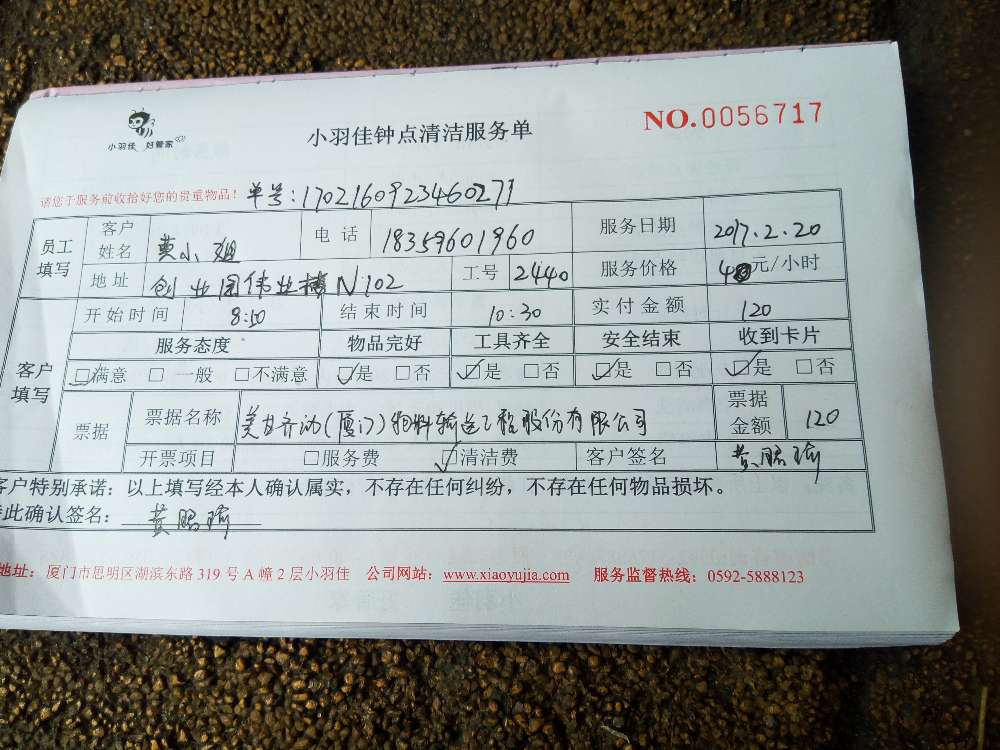 小羽佳 好管家
小羽佳钟点清洁服务单
NO.0056717
请您于服务前收拾好您的贵重物品！ 单号：1702160923460271
员工填写 客户姓名 黄小姐 电话 18359601960 服务日期 2017.2.20
地址 创业园伟业楼N102 工号 2440 服务价格 元/小时
开始时间 8:50 结束时间 10:30 实付金额 120
客户填写 服务态度 物品完好 工具齐全 安全结束 收到卡片
☑满意 □一般 □不满意 ☑是 □否 ☑是 □否 ☑是 □否 ☑是 □否
票据 票据名称 (厦门)物料输送工程股份有限公司 票据金额 120
开票项目 □服务费 ☑清洁费 客户签名 黄鹏瑜
客户特别承诺：以上填写经本人确认属实，不存在任何纠纷，不存在任何物品损坏。
特此确认签名： 黄鹏瑜
地址：厦门市思明区湖滨东路 319 号 A 幢 2 层小羽佳 公司网站：www.xiaoyujia.com 服务监督热线：0592-5888123